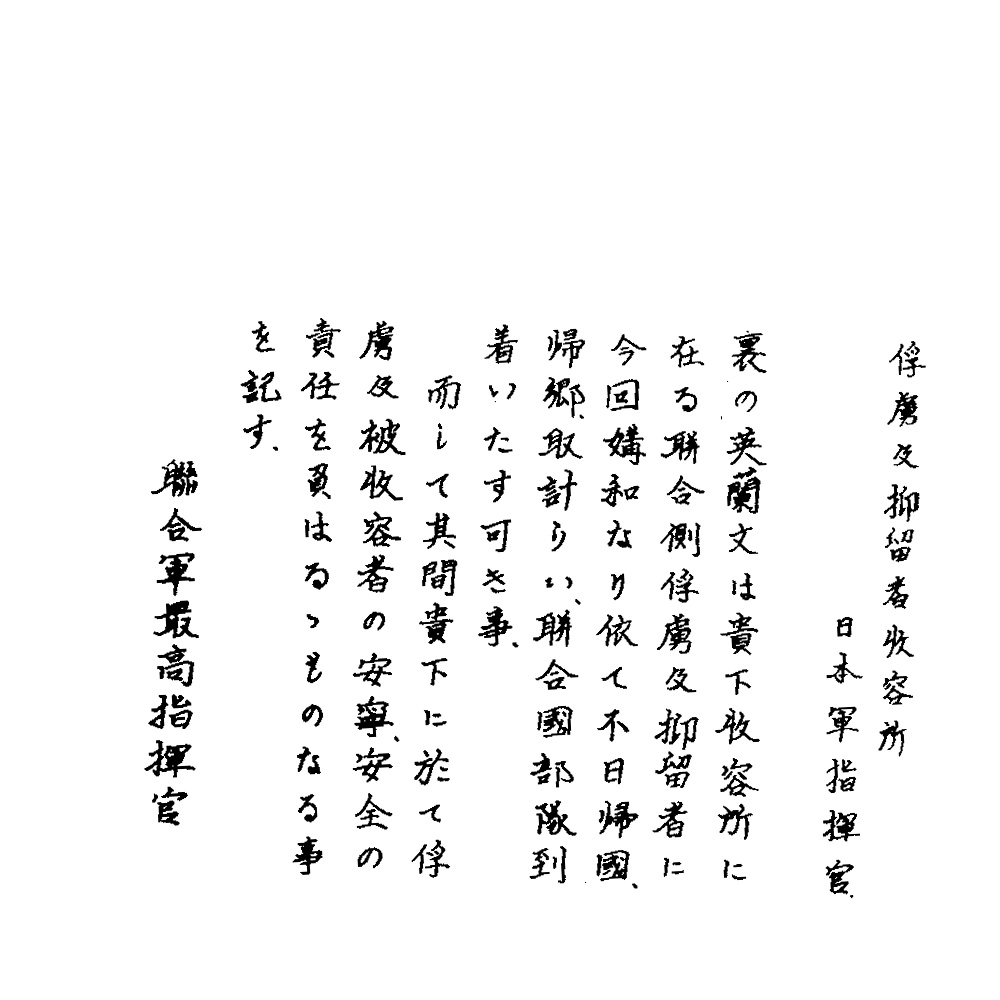 俘虜及抑留者收容所
日本軍指揮官.
裏の英蘭文は貴下收容所に
在る聯合側俘虜及抑留者に
今回媾和なり依て不日帰國、
帰郷、取計らい、聯合國部隊到
着いたす可き事、
而して其間貴下に於て俘
虜及被收容者の安寧、安全の
責任を負はるゝものなる事
を記す、
聯合軍最高指揮官